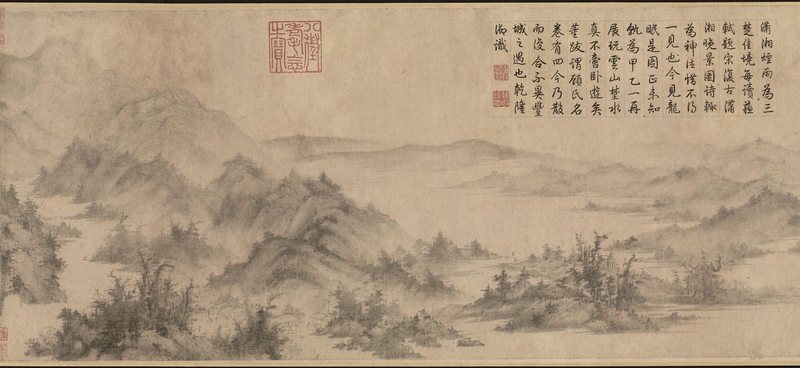 瀟湘煙雨為三
楚佳境每讀蘇
軾題宋復古瀟
湘晚景圖詩輒
為神往惜不得
一見也今見龍
眠是圖正未知
孰為甲乙一再
展玩雲山埜水
真不啻卧遊矣
董跋謂顧氏名
卷有四今乃散
而復合不異豐
城之遇也乾隆
御識
八徵
耄念
之寶